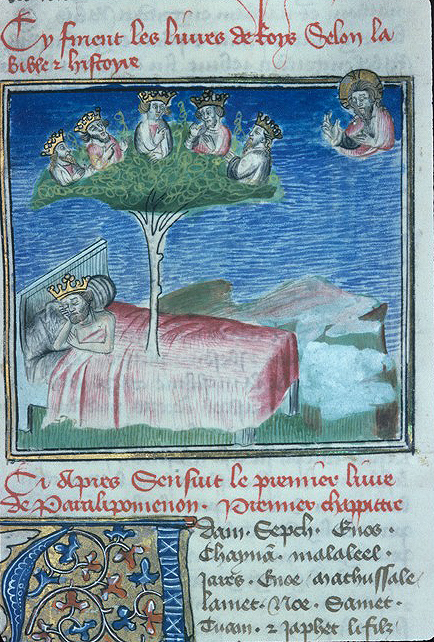 Cy finent les liures de Roys Selon la
bible & histoire
Ci Apres Sensuit le premier liure
de Paralipomenon. Premier chappitre
Adam. Sepch. Enos.
Chaynã. malaleel.
Jareth. Enoc. mathussale
Lamet. Noe. Samet.
& Japhet le filz